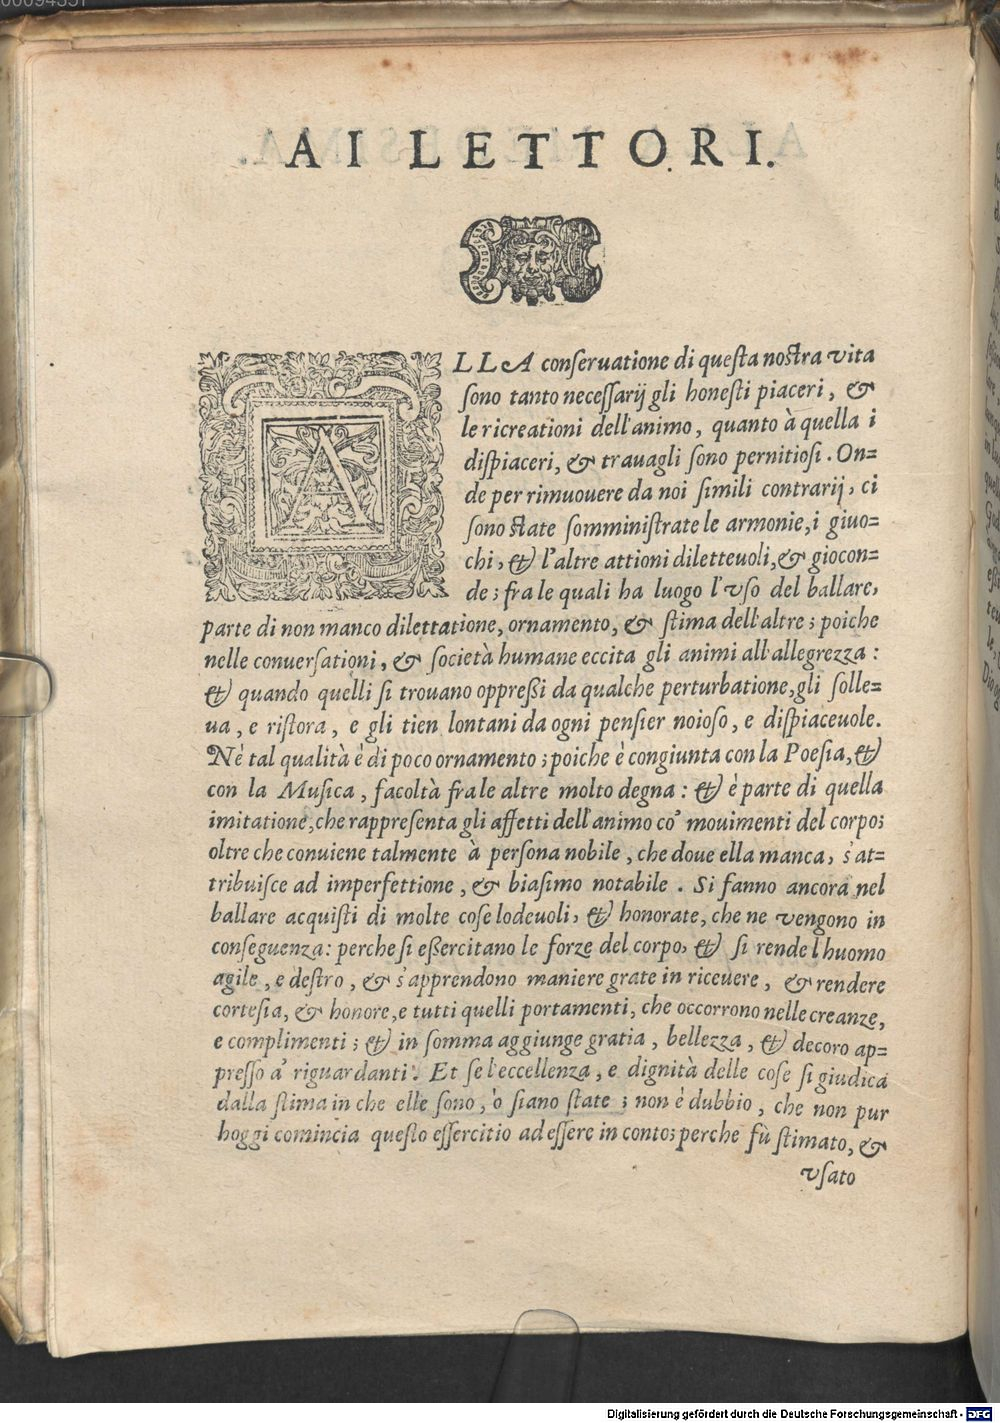 AI LETTORI.
ALLA conſeruatione di queſta noſtra vita
ſono tanto neceſſarij gli honeſti piaceri, &
le ricreationi dell'animo, quanto à quella i
diſpiaceri, & trauagli ſono pernitioſi. On=
de per rimuouere da noi ſimili contrarij, ci
ſono ſtate ſomminiſtrate le armonie, i giuo=
chi, & l'altre attioni diletteuoli, & giocon=
de; fra le quali ha luogo l'vſo del ballare,
parte di non manco dilettatione, ornamento, & ſtima dell'altre; poiche
nelle conuerſationi, & società humane eccita gli animi all'allegrezza:
& quando quelli ſi trouano oppreßi da qualche perturbatione, gli ſolle=
ua, e riſtora, e gli tien lontani da ogni penſier noioſo, e diſpiaceuole.
Nè tal qualità è di poco ornamento; poiche è congiunta con la Poeſia, &
con la Muſica, facoltà fra le altre molto degna: & è parte di quella
imitatione, che rappreſenta gli affetti dell'animo co' mouimenti del corpo;
oltre che conuiene talmente à perſona nobile, che doue ella manca, s'at=
tribuiſce ad imperfettione, & biaſimo notabile. Si fanno ancora nel
ballare acquiſti di molte coſe lodeuoli, & honorate, che ne vengono in
conſeguenza: perche ſi eßercitano le forze del corpo, & ſi rende l'huomo
agile, e deſtro, & s'apprendono maniere grate in riceuere, & rendere
corteſia, & honore, e tutti quelli portamenti, che occorrono nelle creanze,
e complimenti; & in ſomma aggiunge gratia, bellezza, & decoro ap=
preſſo a' riguardanti. Et ſe l'eccellenza, e dignità delle coſe ſi giudica
dalla ſtima in che elle ſono, ò ſiano ſtate; non è dubbio, che non pur
hoggi comincia queſto eſſercitio ad eſſere in conto; perche fù ſtimato, &
vſato
Digitalisierung gefördert durch die Deutsche Forschungsgemeinschaft - DFG